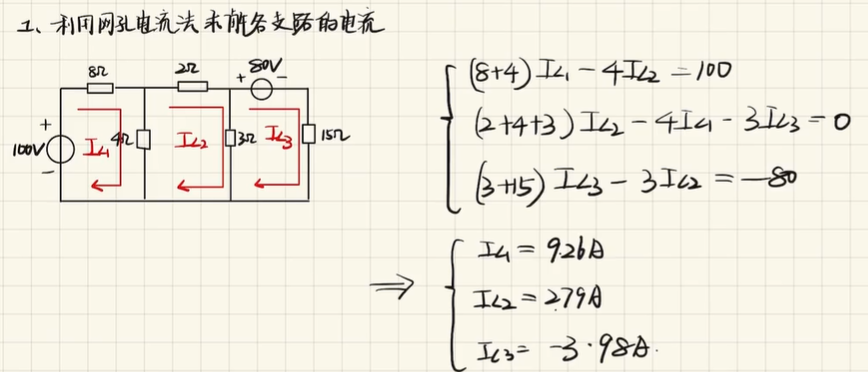 1、利用网孔电流法求解各支路的电流
8Ω 2Ω + 80V -
+ 100V -
IL1 4Ω IL2 3Ω IL3 15Ω
(8+4)IL1-4IL2=100
(2+4+3)IL2-4IL1-3IL3=0
(3+15)IL3-3IL2=-80
⇒
IL1=9.26A
IL2=2.79A
IL3=-3.98A.